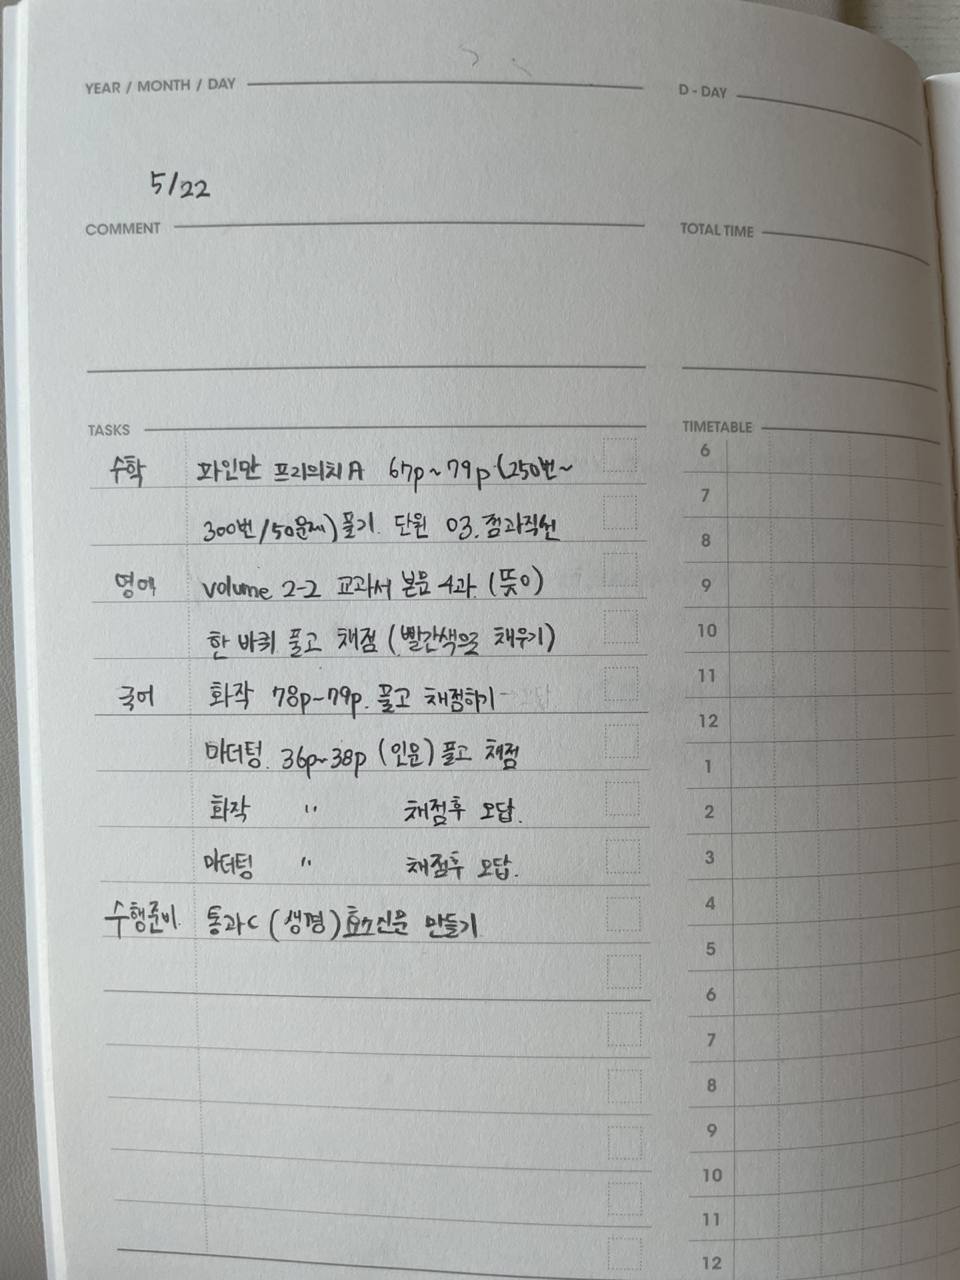 YEAR / MONTH / DAY
D - DAY
5/22
COMMENT
TOTAL TIME
TASKS
TIMETABLE
수학 파인만 프리의치A 67p~79p (250번~
300번/50문제) 풀기. 단원 03. 점과직선
영어 volume 2-2 교과서 본문 4과. (뜻이)
한 바퀴 풀고 채점 (빨간색으로 채우기)
국어 화작 78p~79p. 풀고 채점하기
마더텅. 36p~38p (인문) 풀고 채점
화작 " 채점후 오답.
마더텅 " 채점후 오답.
수행준비. 통과C (생명) 효소신문 만들기
6
7
8
9
10
11
12
1
2
3
4
5
6
7
8
9
10
11
12